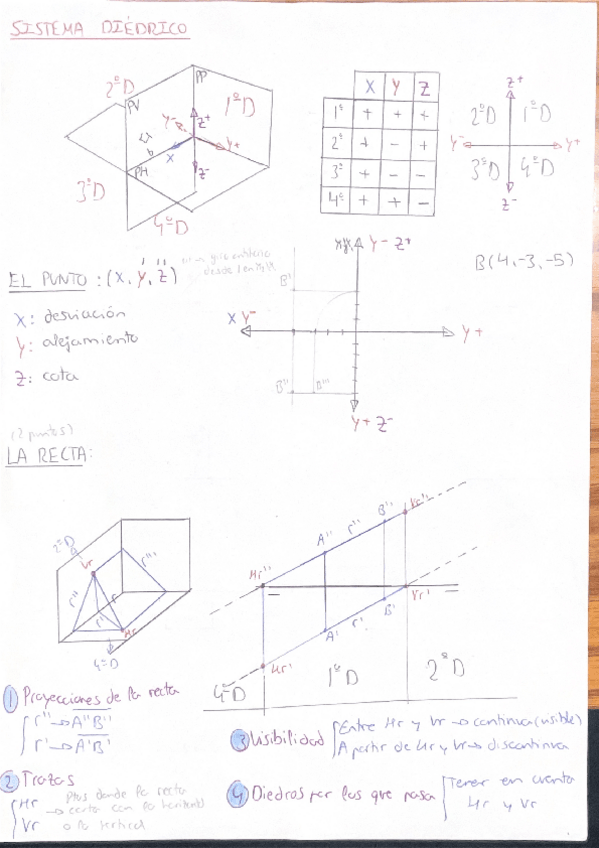 SISTEMA DIÉDRICO
2ºD
PP
1ºD
PV
Z+
Y-
Y+
X
PH
Z-
3ºD
4ºD
X Y Z
1º + + +
2º + - +
3º + - -
4º + + -
Z+
2ºD 1ºD
Y- Y+
3ºD 4ºD
Z-
EL PUNTO: (X, Y, Z)
X: desviación
Y: alejamiento
Z: cota
Y- Z+
B'
X Y- Y+
B'' B'''
Y+ Z-
B(4,-3,-5)
(2 puntos)
LA RECTA:
2ºD
Vr
r'''
r''
r
r'
Hr
4ºD
Vr''
B''
r''
A''
Hr''
Vr'
B'
r'
A'
Hr'
4ºD 1ºD 2ºD
1 Proyecciones de la recta
r'' → A''B''
r' → A'B'
2 Trazas
Hr
Vr
→ Ptos donde la recta
corta con la horizontal
o la vertical
3 Visibilidad
Entre Hr y Vr → continua (visible)
A partir de Hr y Vr → discontinua
4 Diedros por los que pasa
Tener en cuenta
Hr y Vr